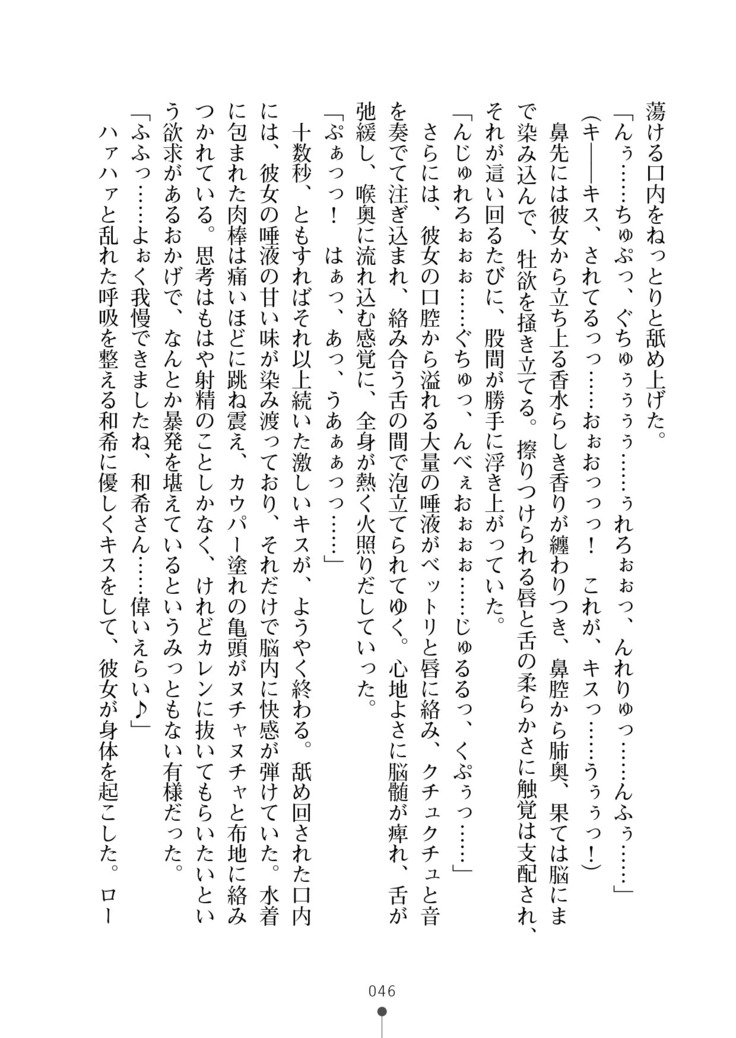 蕩ける口内をねっとりと舐め上げた。
「んぅ……ちゅぷっ、ぐちゅぅぅぅ……ぅれろぉぉっ、んれりゅっ……んふぅ……」
（キ――キス、されてるっっ……おぉおっっっ！　これが、キスっ……うぅぅっ！）
鼻先には彼女から立ち上る香水らしき香りが纏わりつき、鼻腔から肺奥、果ては脳にま
で染み込んで、牡欲を掻き立てる。擦りつけられる唇と舌の柔らかさに触覚は支配され、
それが這い回るたびに、股間が勝手に浮き上がっていた。
「んじゅれろぉぉぉ……ぐちゅっ、んべぇおぉぉぉ……じゅるるっ、くぷぅっ……」
さらには、彼女の口腔から溢れる大量の唾液がベットリと唇に絡み、クチュクチュと音
を奏でて注ぎ込まれ、絡み合う舌の間で泡立てられてゆく。心地よさに脳髄が痺れ、舌が
弛緩し、喉奥に流れ込む感覚に、全身が熱く火照りだしていった。
「ぷぁっっ！　はぁっ、あっ、うあぁぁっっ……」
十数秒、ともすればそれ以上続いた激しいキスが、ようやく終わる。舐め回された口内
には、彼女の唾液の甘い味が染み渡っており、それだけで脳内に快感が弾けていた。水着
に包まれた肉棒は痛いほどに跳ね震え、カウパー塗れの亀頭がヌチャヌチャと布地に絡み
つかれている。思考はもはや射精のことしかなく、けれどカレンに抜いてもらいたいとい
う欲求があるおかげで、なんとか暴発を堪えているというみっともない有様だった。
「ふふっ……よぉく我慢できましたね、和希さん……偉いえらい♪」
ハァハァと乱れた呼吸を整える和希に優しくキスをして、彼女が身体を起こした。ロー
046